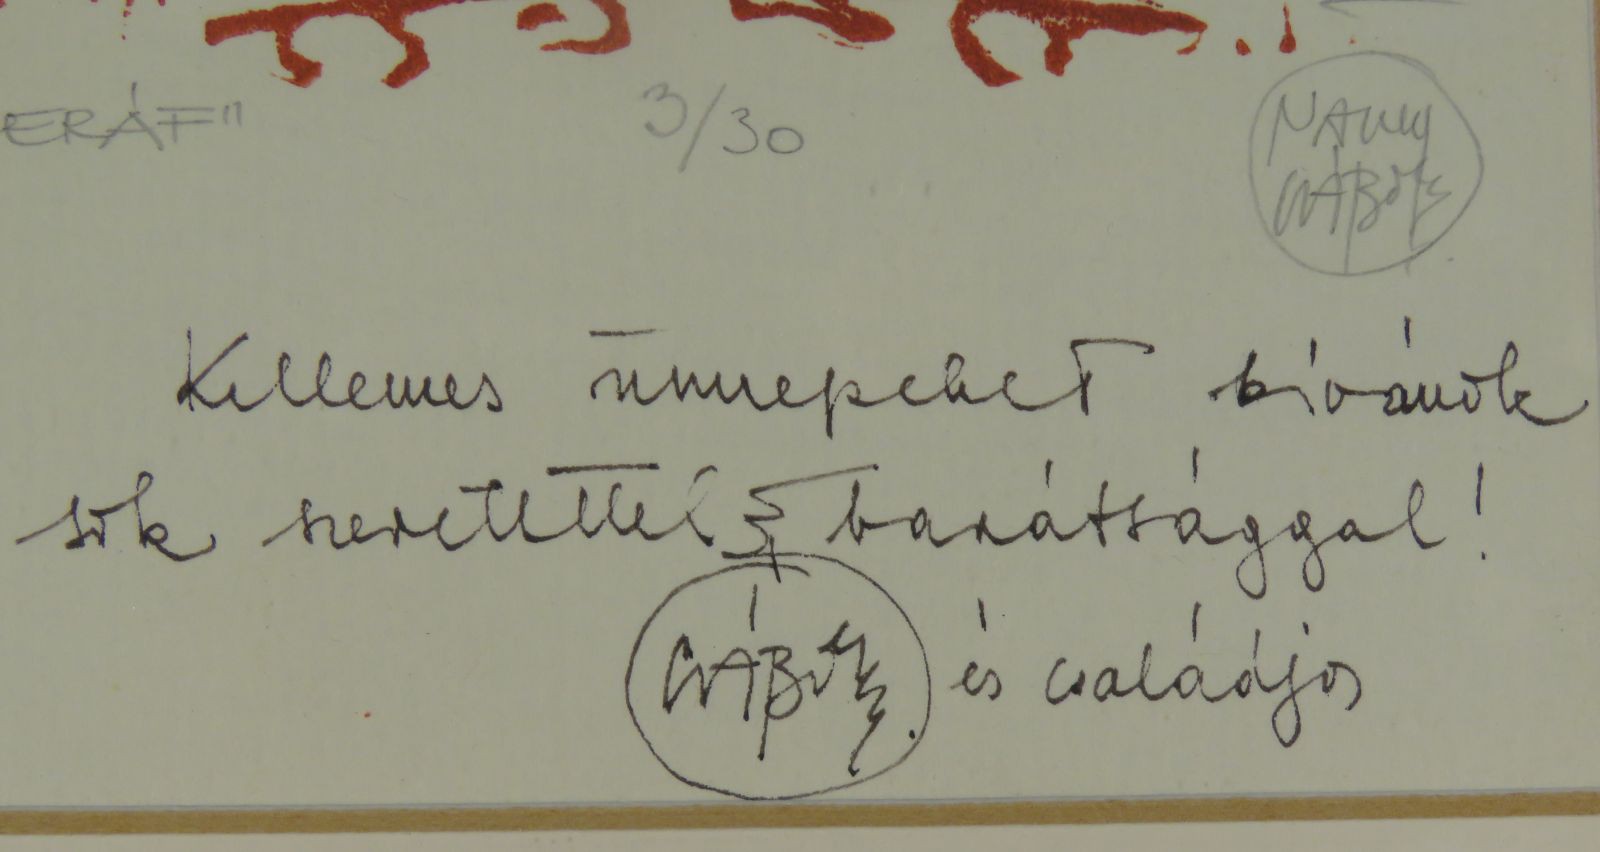 ERÁF"
3/30
NAGY
GÁBOR
Kellemes ünnepeket kívánok
sok szeretettel & barátsággal!
GÁBOR és családja